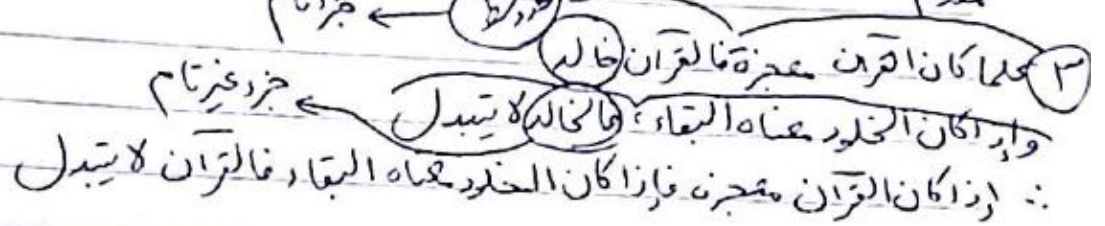 جزء تام
٣ كلما كان القرآن معجزة فالقرآن خالد
وإذا كان الخلود معناه البقاء، فالخالد لا يتبدل
جزء غير تام
∴ إذا كان القرآن معجزة فإذا كان الخلود معناه البقاء فالقرآن لا يتبدل